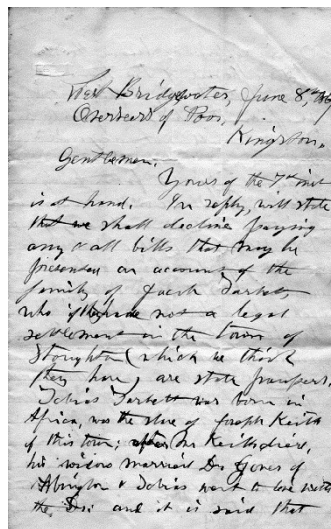 West Bridgewater, June 8th
Overseers of Poor,
Kingston,
Gentlemen,
Yours of the 7th inst
is at hand. In reply, will state
that we shall decline paying
any & all bills that may be
presented on account of the
family of
who if they have not a legal
settlement in the town of
Stoughton (which we think
they have) are state paupers.
Tobias was born in
Africa, was the slave of Joseph Keith
of this town; after Mr Keith died,
his widow married Dr Jones of
Abington & Tobias went to live with
the Dr. and it is said that